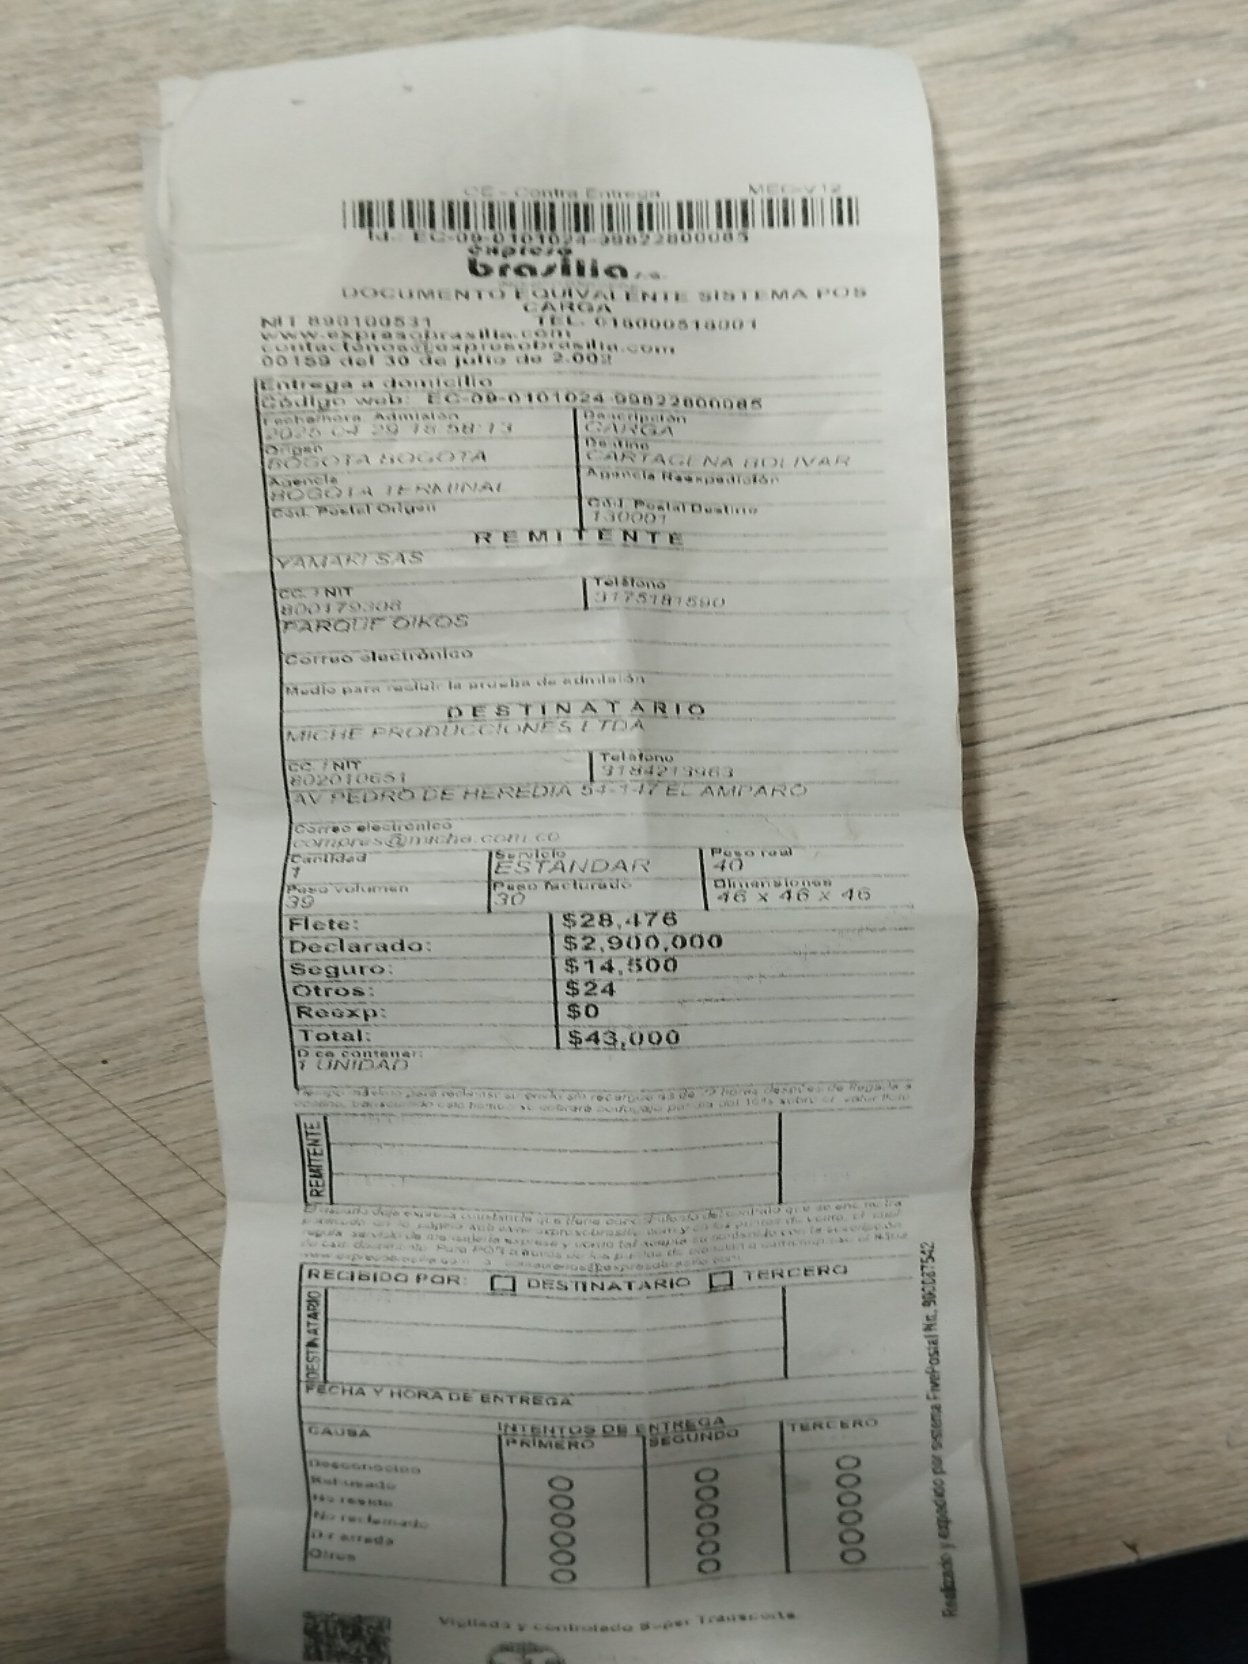 CE - Contra Entrega MEC-V12
Id.: EC-09-0101024-99822800085
expreso
brasilia s.a.
DOCUMENTO EQUIVALENTE SISTEMA POS
CARGA
NIT 890100531 TEL. 018000518001
www.expresobrasilia.com
contactenos@expresobrasilia.com
00159 del 30 de julio de 2.002
Entrega a domicilio
Código web: EC-09-0101024-99822800085
Fecha/hora Admisión Descripción
2025-04-29 18:58:13 CARGA
Origen Destino
BOGOTA BOGOTA CARTAGENA BOLIVAR
Agencia Agencia Reexpedición
BOGOTA TERMINAL
Cód. Postal Origen Cód. Postal Destino
130001
REMITENTE
YAMAKI SAS
CC. / NIT Teléfono
800179308 3175181590
PARQUE OIKOS
Correo electrónico
Medio para recibir la prueba de admisión
DESTINATARIO
MICHE PRODUCCIONES LTDA
CC. / NIT Teléfono
802010651 3184213963
AV PEDRO DE HEREDIA 54-147 EL AMPARO
Correo electrónico
compras@miche.com.co
Cantidad Servicio Peso real
1 ESTANDAR 40
Peso volumen Peso facturado Dimensiones
39 30 46 x 46 x 46
Flete: $28,476
Declarado: $2,900,000
Seguro: $14,500
Otros: $24
Reexp: $0
Total: $43,000
Dice contener:
1 UNIDAD
REMITENTE
RECIBIDO POR: DESTINATARIO TERCERO
DESTINATARIO
FECHA Y HORA DE ENTREGA
CAUSA INTENTOS DE ENTREGA
PRIMERO SEGUNDO TERCERO
Desconocido
Rehusado
No reside
No reclamado
Dir errada
Otros
Realizado y expedido por sistema FivePostal Nit.
Vigilada y controlado Super Transporte